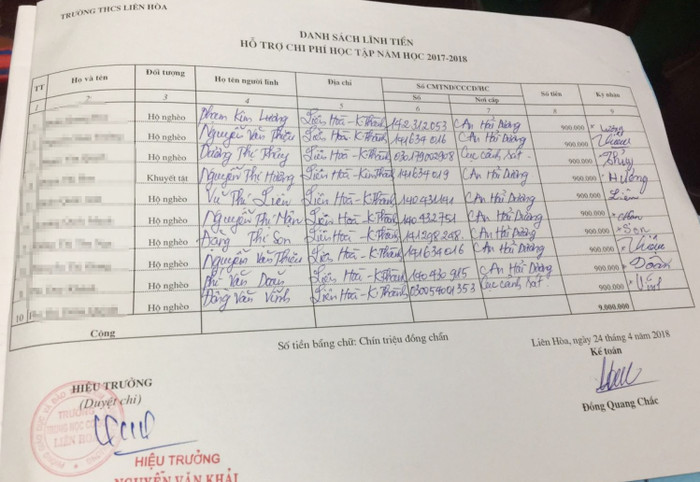 TRƯỜNG THCS LIÊN HÒA
DANH SÁCH LĨNH TIỀN
HỖ TRỢ CHI PHÍ HỌC TẬP NĂM HỌC 2017-2018
TT Họ và tên Đối tượng Họ tên người lĩnh Địa chỉ Số CMTND/CCCD/HC Số tiền Ký nhận
Số Nơi cấp
1 2 3 4 5 6 7 8 9
Hộ nghèo Phạm Kim Lương Liên Hoà - K Thành 142312053 CA Hải Dương 900.000
Hộ nghèo Nguyễn Văn Thiệu Liên Hoà - K Thành 141634016 CA Hải Dương 900.000
Hộ nghèo Dương Thị Thủy Liên Hoà - K Thành 030179002908 Cục cảnh sát. 900.000 Thủy
Khuyết tật Nguyễn Thị Hường Liên Hoà - Kim Thành 141634019 CA Hải Dương 900.000 Hường
Hộ nghèo Vũ Thị Liên Liên Hoà - K Thành CA Hải Dương 900.000 Liên
Hộ nghèo Nguyễn Thị Mận Liên Hoà - K Thành 140432751 CA Hải Dương 900.000
Hộ nghèo Đặng Thế Sơn Liên Hoà - K Thành 141298248. CA Hải Dương 900.000 Sơn
Hộ nghèo Nguyễn Văn Thiệu Liên Hoà - K Thành 141634016 CA Hải Dương 900.000
Hộ nghèo Phí Văn Doãn Liên Hoà - K Thành 140430915 CA Hải Dương 900.000 Doãn
10 Hộ nghèo Đồng Văn Vĩnh Liên Hoà - K Thành 030054001353 Cục cảnh sát. 900.000
Cộng 9.000.000
Số tiền bằng chữ: Chín triệu đồng chẵn
Liên Hòa, ngày 24 tháng 4 năm 2018
HIỆU TRƯỞNG
(Duyệt chi)
Kế toán
TRƯỜNG
TRUNG HỌC CƠ SỞ
LIÊN HÒA
Đồng Quang Chắc
HIỆU TRƯỞNG
NGUYỄN VĂN KHẢI